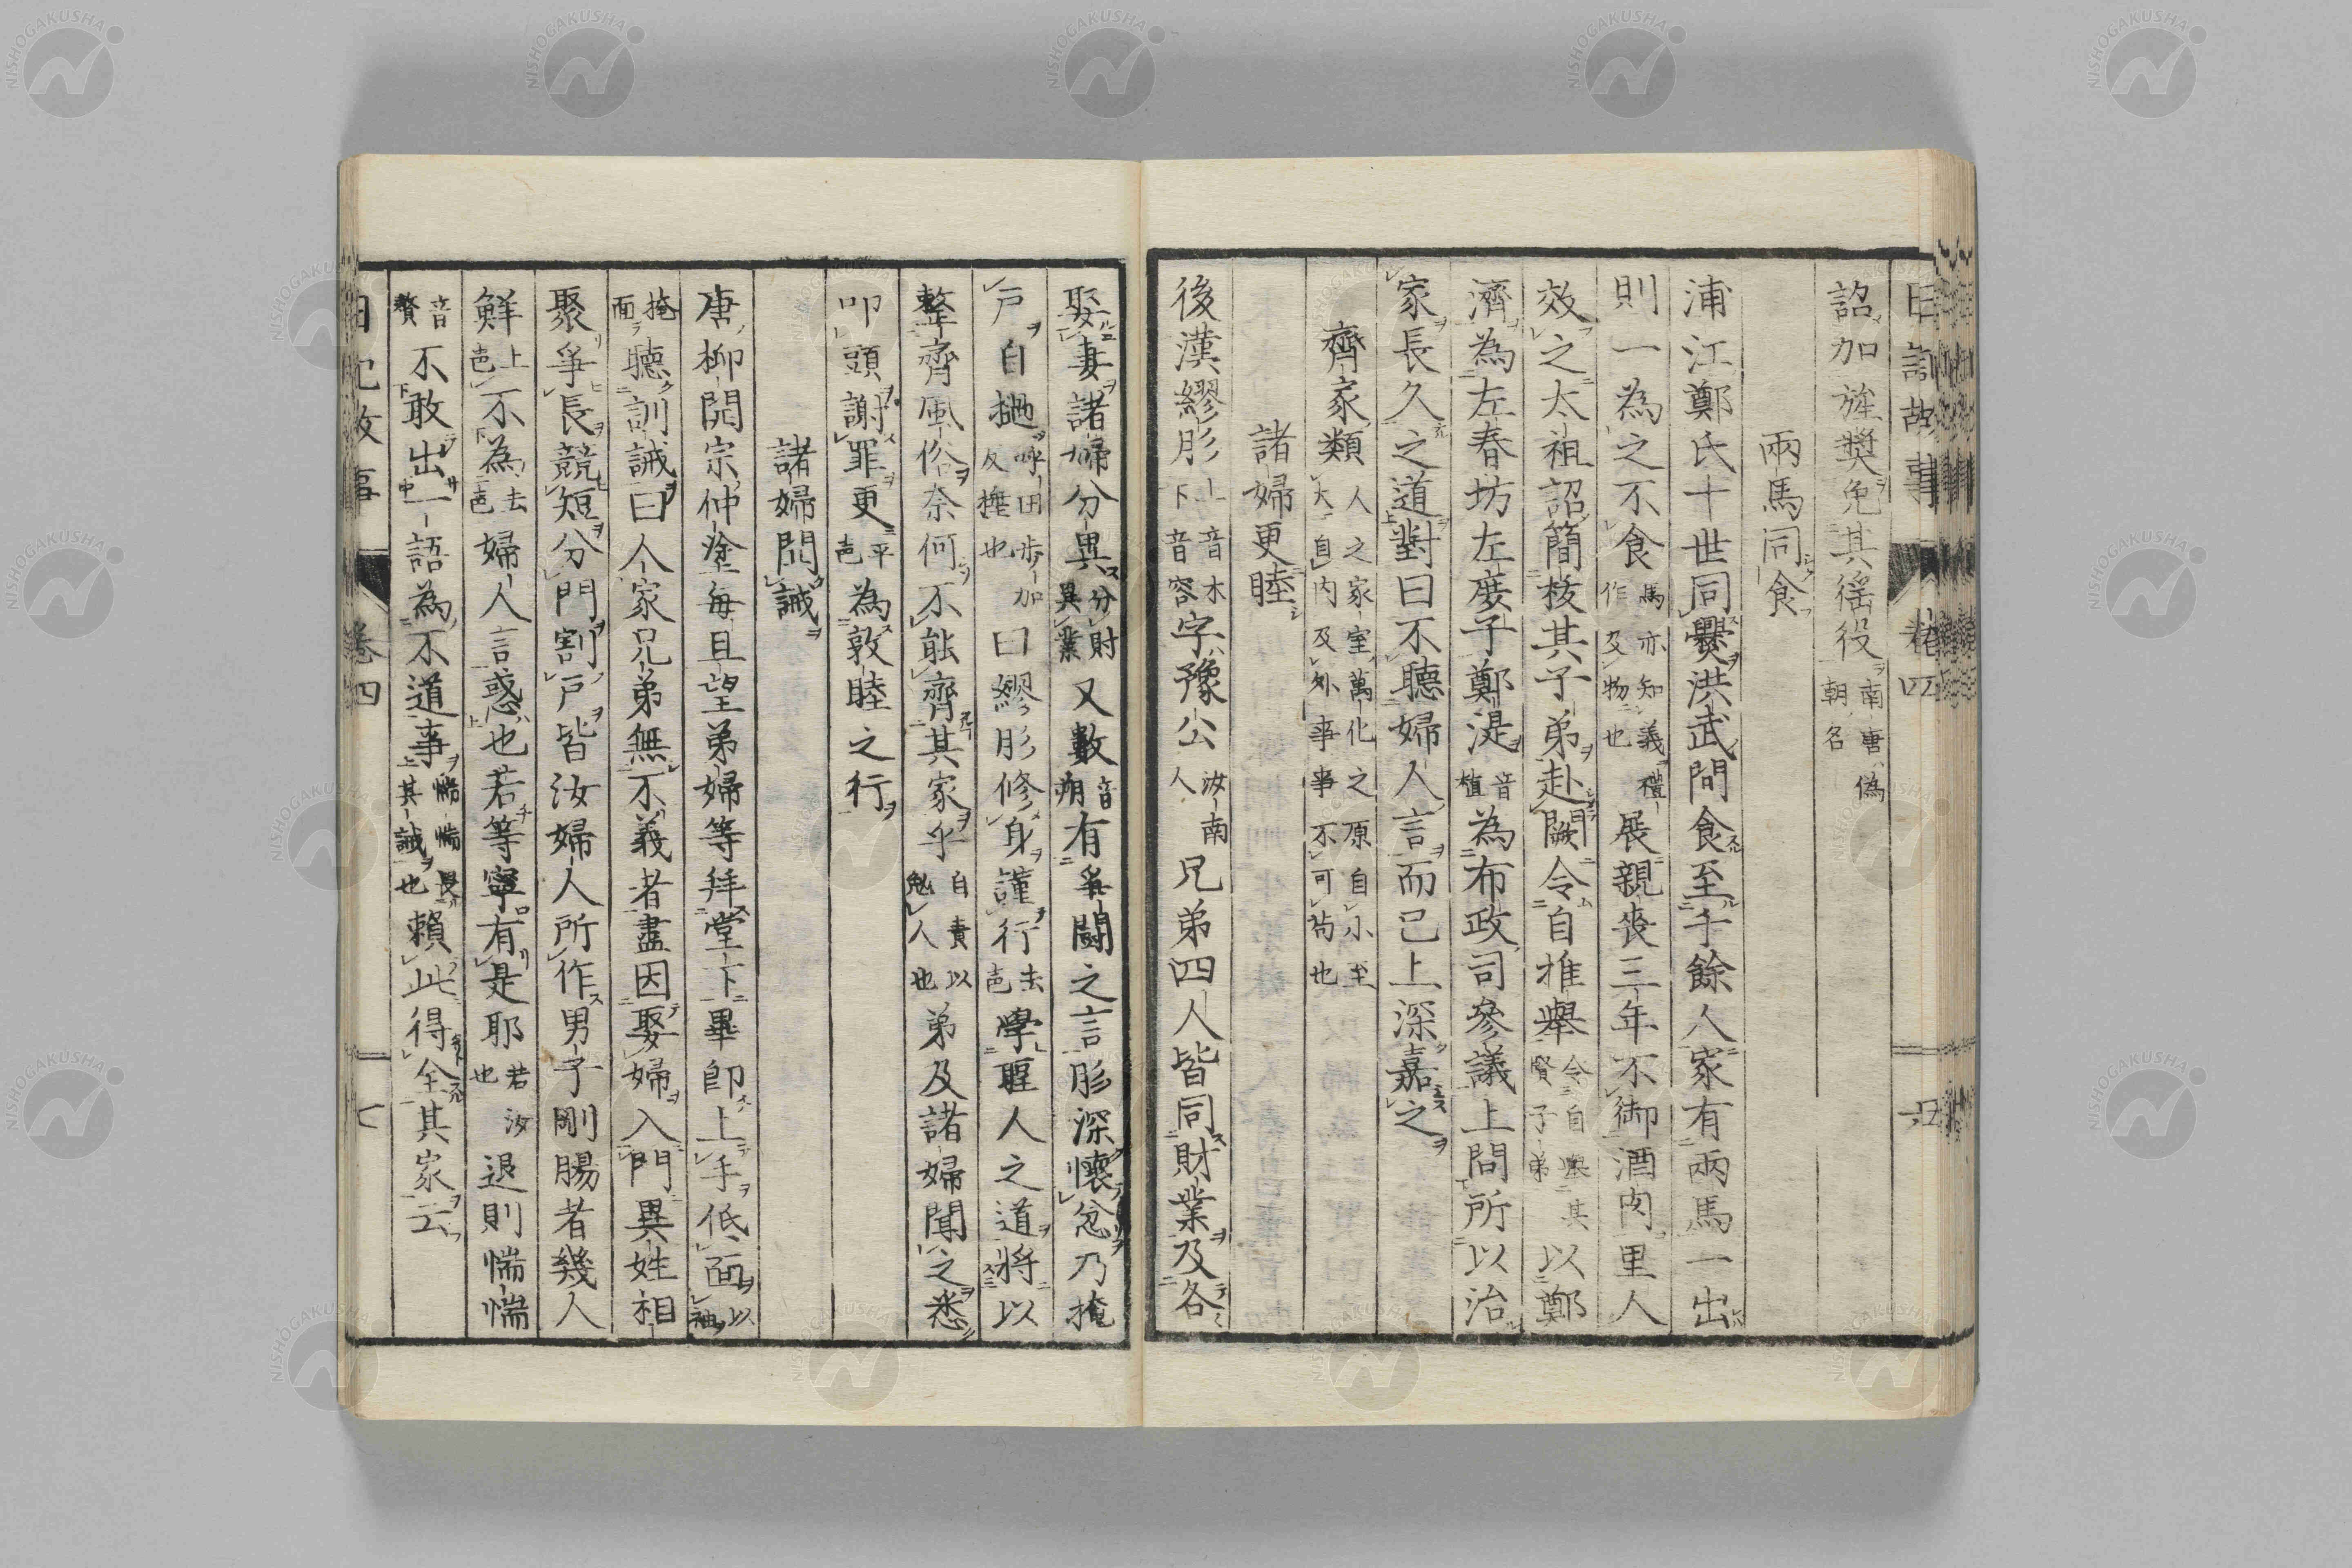 日記故事 卷四
詔加旌奬免其徭役南唐僞朝名
兩馬同食
浦江鄭氏十世同爨洪武間食至千餘人家有兩馬一出
則一為之不食馬亦知義禮作及物也展親喪三年不御酒肉里人
效之太祖詔簡核其子弟赴闕令自推舉令自舉其賢子弟以鄭
濟為左春坊左庶子鄭湜音植為布政司參議上問所以治
家長久之道對曰不聽婦人言而已上深嘉之
齊家類人之家室萬化之原自小至大自内及外事事不可茍也
諸婦更睦
後漢繆肜上音木下音容字豫公汝南人兄弟四人皆同財業及各
娶妻諸婦分異分財異業又數音朔有爭鬪之言肜深懷忿乃掩
戸自撾呼田歩加反撻也曰繆肜修身謹行去声學聖人之道將以
整齊風俗奈何不能齊其家乎自責以勉人也弟及諸婦聞之悉
叩頭謝罪更平声為敦睦之行
諸婦閧誡
唐柳開宗仲塗每旦望弟婦等拜堂下畢即上手低面以袖
掩面聽訓誡曰人家兄弟無不義者盡因娶婦入門異姓相
聚爭長競短分門割戸皆汝婦人所作男子剛腸者幾人
鮮上声不為去声婦人言惑也若等寧有是耶若汝也退則惴惴
音贅不敢出一語為不道事惴惴畏其誡也賴此得全其家云
日記故事 卷四 七